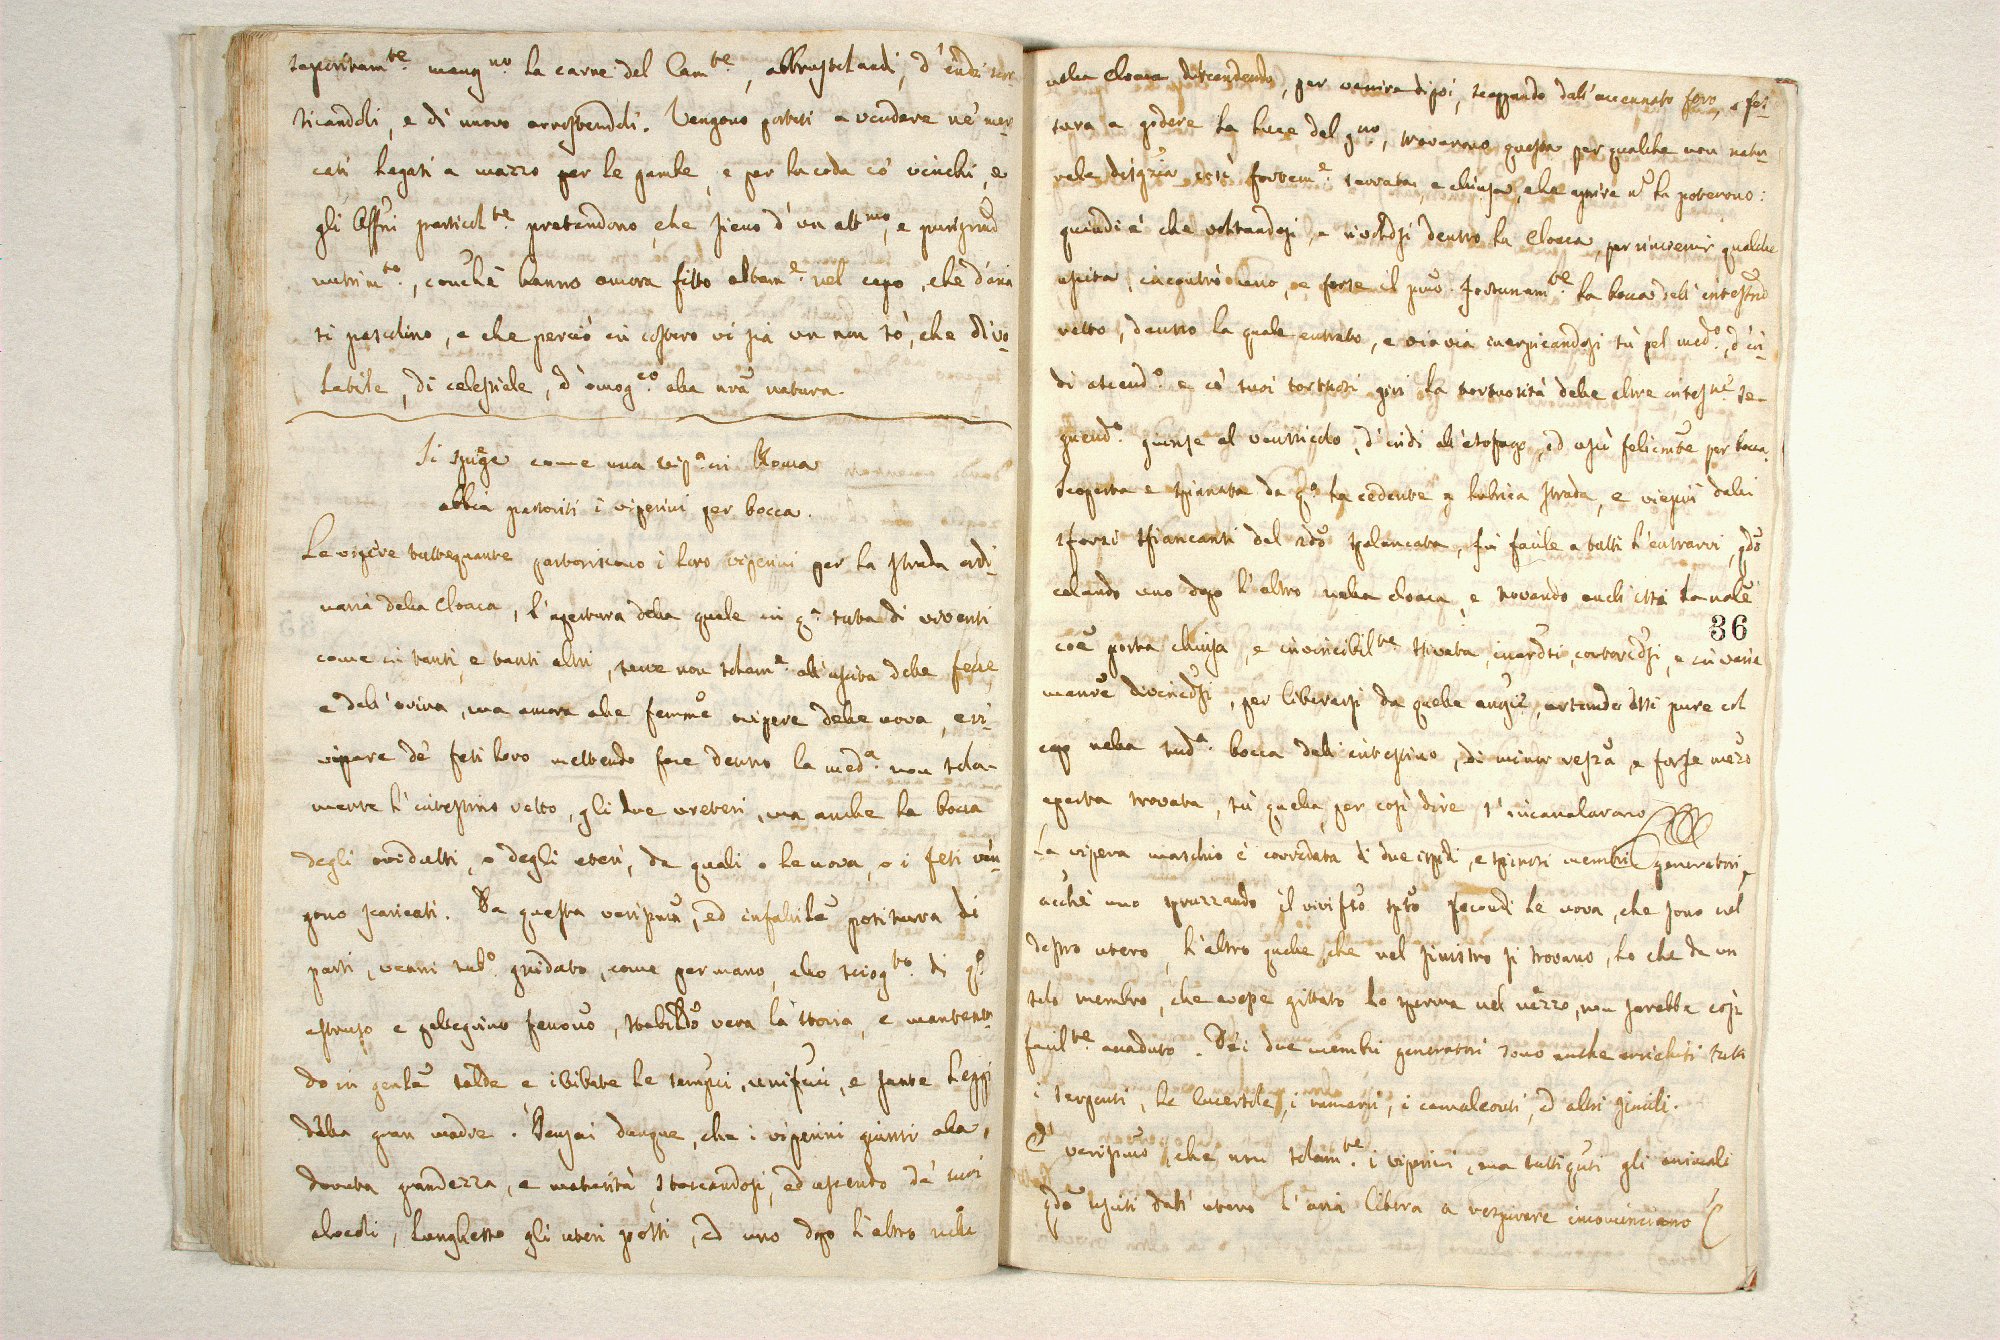 saporitam.te mang.no la carne del Cam.te, abbrustolandoli, d'indi scor-
ticandoli, e di nuovo arrostendoli. Vengono portati a vendere ne' mer-
cati legati a mazzo per le gambe, e per la coda co' vinchi, e
gli Affri particol.te pretendono, che sieno d'un ott.mo, e purgnd
nutrim.to, conchè hanno ancora fitto altam.e nel capo, che d'aria
si pascolino, e che perciò in costoro vi sia un non sò, che di vo-
labile, di celestiale, d'omog.eo alla nrã natura.
Si spiega come una vip.a in Roma
abbia partoriti i viperini per bocca.
Le vipere tuttequante partoriscono i loro viperini per la strada ordi-
naria della Cloaca, l'apertura della quale in q.a sorta di viventi
come in tanti, e tanti altri, serve non solam.e all'uscita delle fecie,
e dell'orina, ma ancora alle femmẽ ovipare delle uova, e vi-
vipare de' feti loro mettendo foce dentro la med.a non sola-
mente l'intestino retto, gli due ureteri, ma anche la bocca
degli ovidutti, o degli uteri, da quali o le uova, o i feti ven-
gono scaricati. Da questa verissma, ed infalibile positura di
parti, venni sub.o guidato, come per mano, allo sciog.to di q.o
astruso e pellegrino fenono, stabildo vera la storia, e mantenen-
do in genle salde, e illibate le semplici, unifmi, e sante leggi
della gran madre. Pensai dunque, che i viperini giunti alla
dovuta grandezza, e maturità, staccandosi, ed uscendo da' suoi
alveoli, lunghesso gli uteri posti, ed uno dopo l'altro nella
nella Cloaca discendendo, per venire dipoi, scappando dall'accennato foro, o fes-
sura a godere la luce del g.no, trovarono questa per qualche non natu-
rale disgrazia così fortem.e serrata, e chiusa, che aprire nõ la poterono:
quindi è che voltandosi, e rivoltdsi dentro la Cloaca, per rinvenir qualche
uscita, incontrò uno, e forse il pmo fortunam.te la bocca dell'intestno
retto, dentro la quale entrato, e via via inerpicandosi sù pel med.o, d'in-
di ascend.o e co' suoi tortuosi giri la tortuosità delle altre intesne se-
guend.o giunse al ventricolo, d'indi all'esofago, ed uscì felicmte per bocca.
Scoperta e spianata da q.o la cedente e lubrica strada, e viepiù dalli
sforzi sfiancanti del sdo spalancata, fu facile a tutti l'entrarvi, qdo
calando uno dopo l'altro nella cloaca, e trovando anch'essi la nale
36
coẽ porta chiusa, e invincibil.te stivata, inardsi, contorcdsi, e in varie
manre divincdsi, per liberarsi da quelle angie, urtando essi pure col
capo nella sud.a bocca dell'intestino, di minor resza e forse mezo
aperta trovata, sù quella, per così dire, s'incanalarono
La vipera maschio è corredata di due ispidi, e spinosi membri generatori,
acchè uno spruzzando il vivifco spto fecondi le uova, che sono nel
destro utero, l'altro quelle, che nel sinistro si trovano, lo che da un
solo membro, che avesse gittato lo sperma nel mezzo, non sarebbe così
facil.te accaduto. Dei due membri generatori sono anche arrichiti tutti
i serpenti, le lucertole, i ramarri, i camaleonti, ed altri simili.
È verissmo, che non solam.te i viperini, ma tutti qti gli animali
qdo usciti dall'utero l'aria libera a respirare incominciano